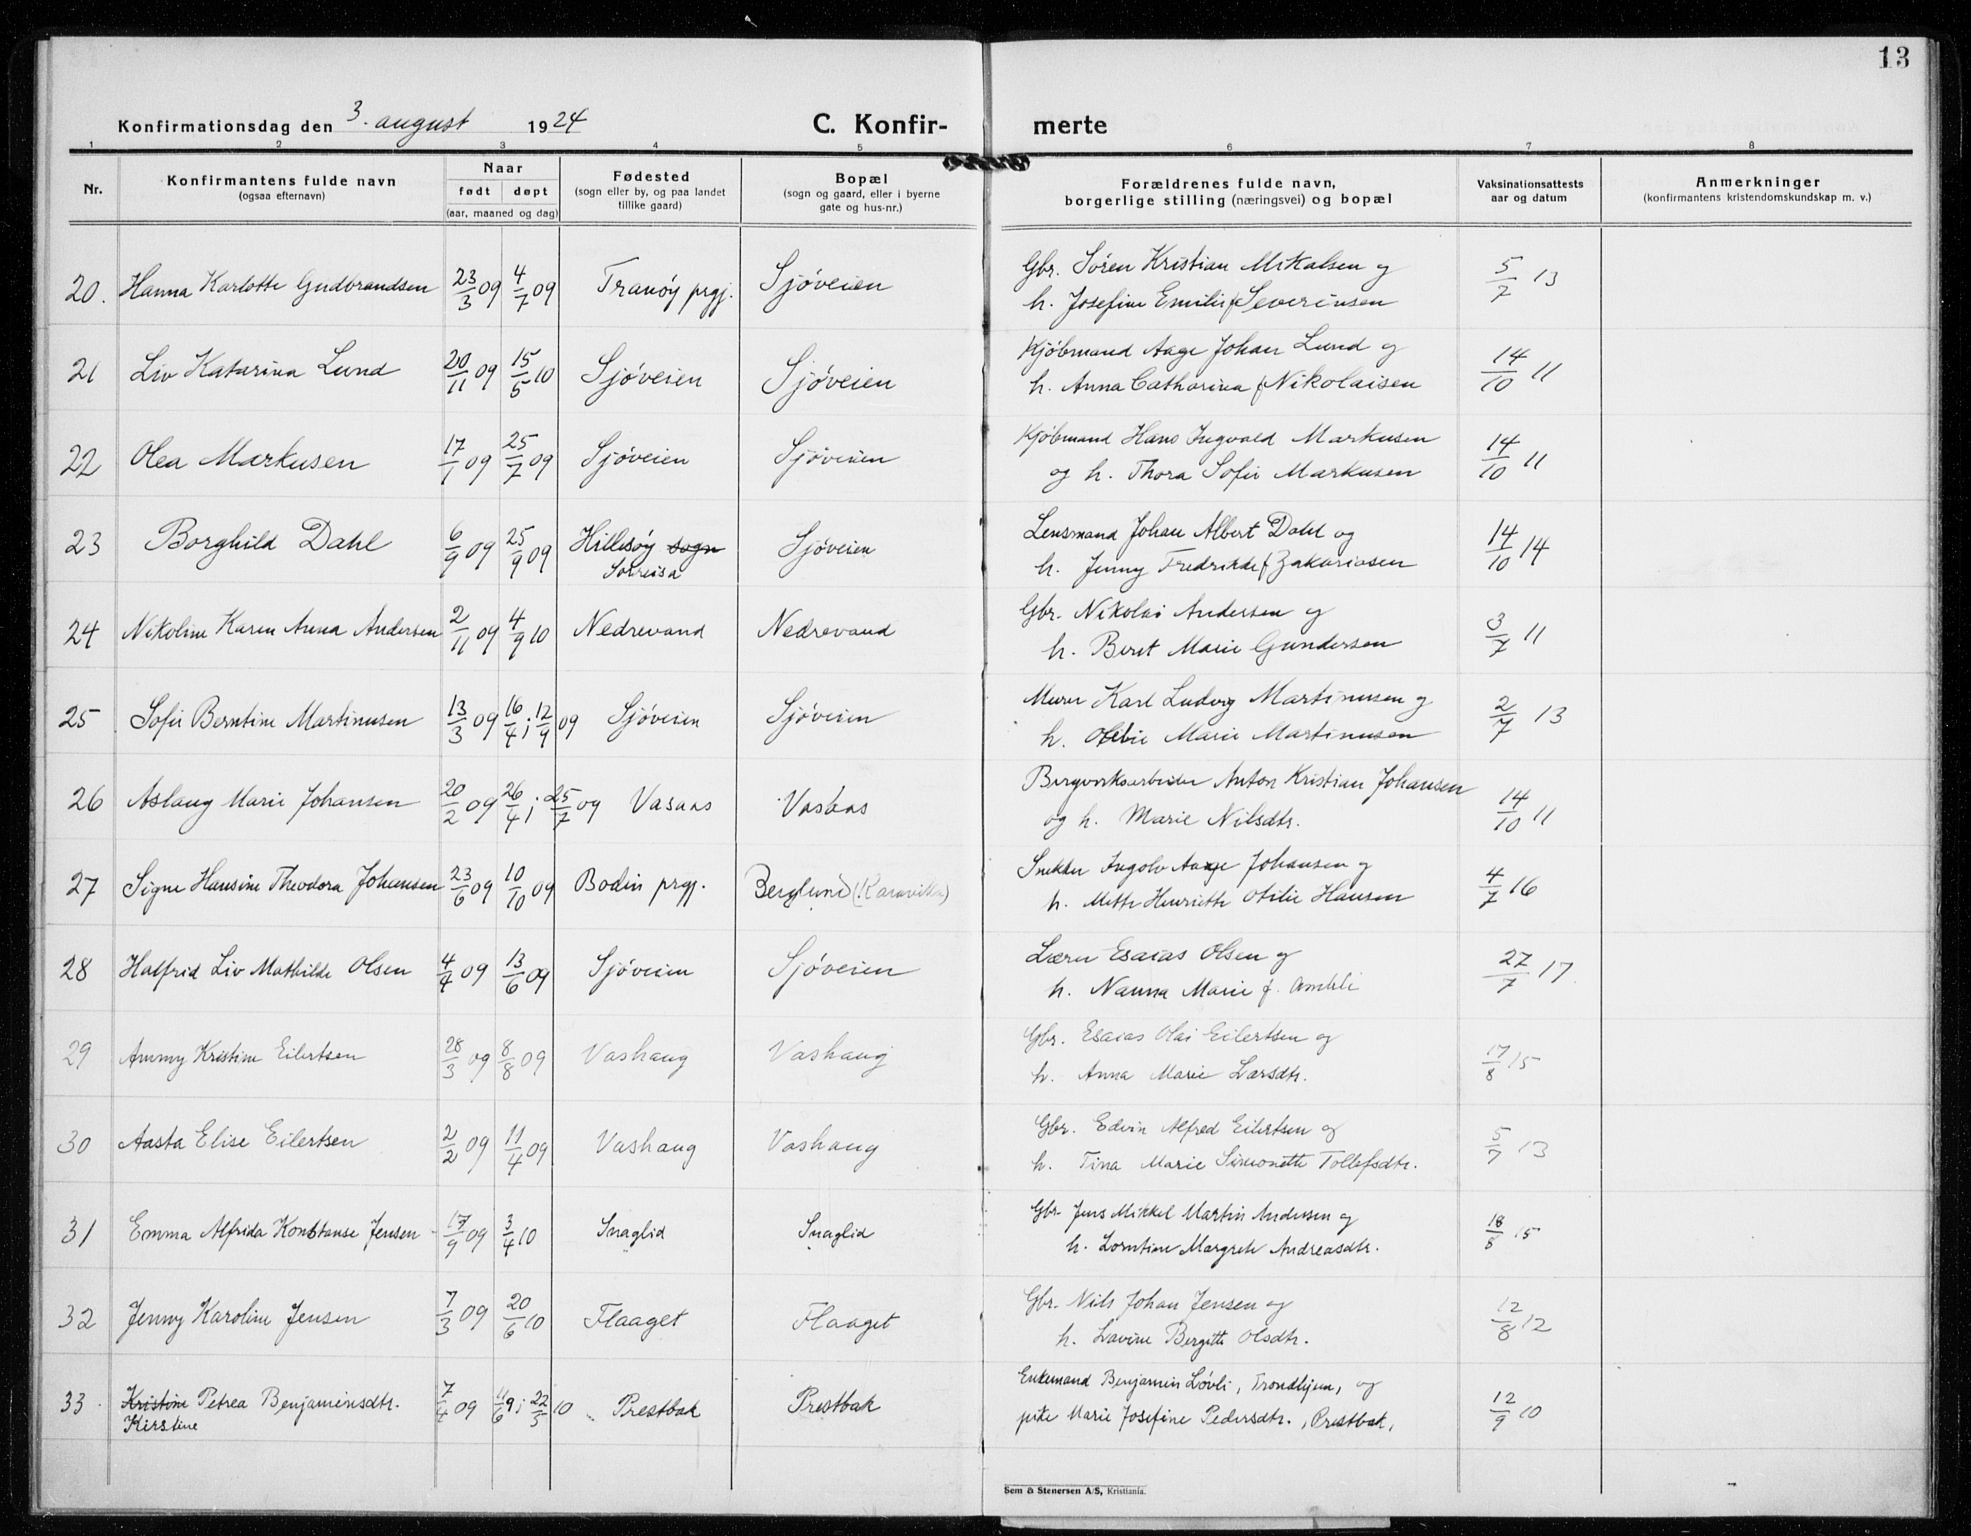 13
Konfirmationsdag den 3. august 1924
C. Konfir- merte
1 2 3 4 5 6 7 8
Nr.
Konfirmantens fulde navn
(ogsaa efternavn)
Naar
født døpt
(aar, maaned og dag)
Fødested
(sogn eller by, og paa landet
tillike gaard)
Bopæl
(sogn og gaard, eller i byerne
gate og hus-nr.)
Forældrenes fulde navn,
borgerlige stilling (næringsvei) og bopæl
Vaksinationsattests
aar og datum
Anmerkninger
(konfirmantens kristendomskundskap m. v.)
20. Hanna Karlotte Gudbrandsen 23/3 09 4/7 09 Tranöy prgj. Sjøveien Gbr. Sören Kristian Mikalsen og
h. Josefine Emilie f. Severinsen 5/7 13
21 Liv Katarina Lund 20/11 09 15/5 10 Sjøveien Sjøveien Kjöbmand Aage Johan Lund og
h. Anna Catharina f. Nikolaisen 14/10 11
22 Olea Markusen 17/1 09 25/7 09 Sjøveien Sjøveien Kjøbmand Hans Ingvald Markusen
og h. Thora Sofie Markusen 14/10 11
23 Borghild Dahl 6/9 09 25/9 09 Hillesöy sogn Sjøveien Lensmand Johan Albert Dahl og
Sørreisa h. Jenny Fredrikke f. Zakariasen 14/10 14
24 Nikoline Karen Anna Andersen 2/11 09 4/9 10 Nedrevand Nedrevand Gbr. Nikolai Andersen og
h. Beret Marie Gundersen 3/7 11
25 Sofie Berntine Martinusen 13/3 09 16/4; 12/9 09 Sjøveien Sjøveien Murer Karl Ludvig Martinusen og
h. Otelie Marie Martinusen 2/7 13
26 Aslaug Marie Johansen 20/2 09 26/4; 25/7 09 Vasaas Vasaas Bergverksarbeider Anton Kristian Johansen
og h. Marie Nilsdtr. 14/10 11
27 Signe Hansine Theodora Johansen 23/6 09 10/10 09 Bodin prgj. Berglund Snekker Ingolv Aage Johansen og
h. Mette Henriette Otilie Hansen 4/7 16
28 Halfrid Liv Mathilde Olsen 4/4 09 13/6 09 Sjøveien Sjøveien Lærer Esaias Olsen og
h. Nanna Marie f. 27/7 17
29 Ammy Kristine Eilertsen 28/3 09 8/8 09 Vashaug Vashaug Gbr. Esaias Olai Eilertsen og
h. Anna Marie Larsdtr. 17/8 15
30 Aasta Elise Eilertsen 2/2 09 11/4 09 Vashaug Vashaug Gbr. Edvin Alfred Eilertsen og
h. Tina Marie Simonette Tollefsdtr. 5/7 13
31 Emma Alfrida Konstanse Jensen 17/9 09 3/4 10 Snaglid Snaglid Gbr. Jens Mikkel Martin Andersen og
h. Lorntine Margrete Andreasdtr. 18/8 15
32 Jenny Karoline Jensen 7/3 09 20/6 10 Flaaget Flaaget Gbr. Nils Johan Jensen og
h. Lavine Bergitte Olsdtr. 12/8 12
33. Kristine Petrea Benjaminsdtr. 7/4 09 22/5 10 Prestbak Prestbak Enkemand Benjamin Lövli, Trondhjem, og
Kirstine pike Marie Josefine Pedersdtr., Prestbak, 12/9 10
Sem & Stenersen A/S, Kristiania.